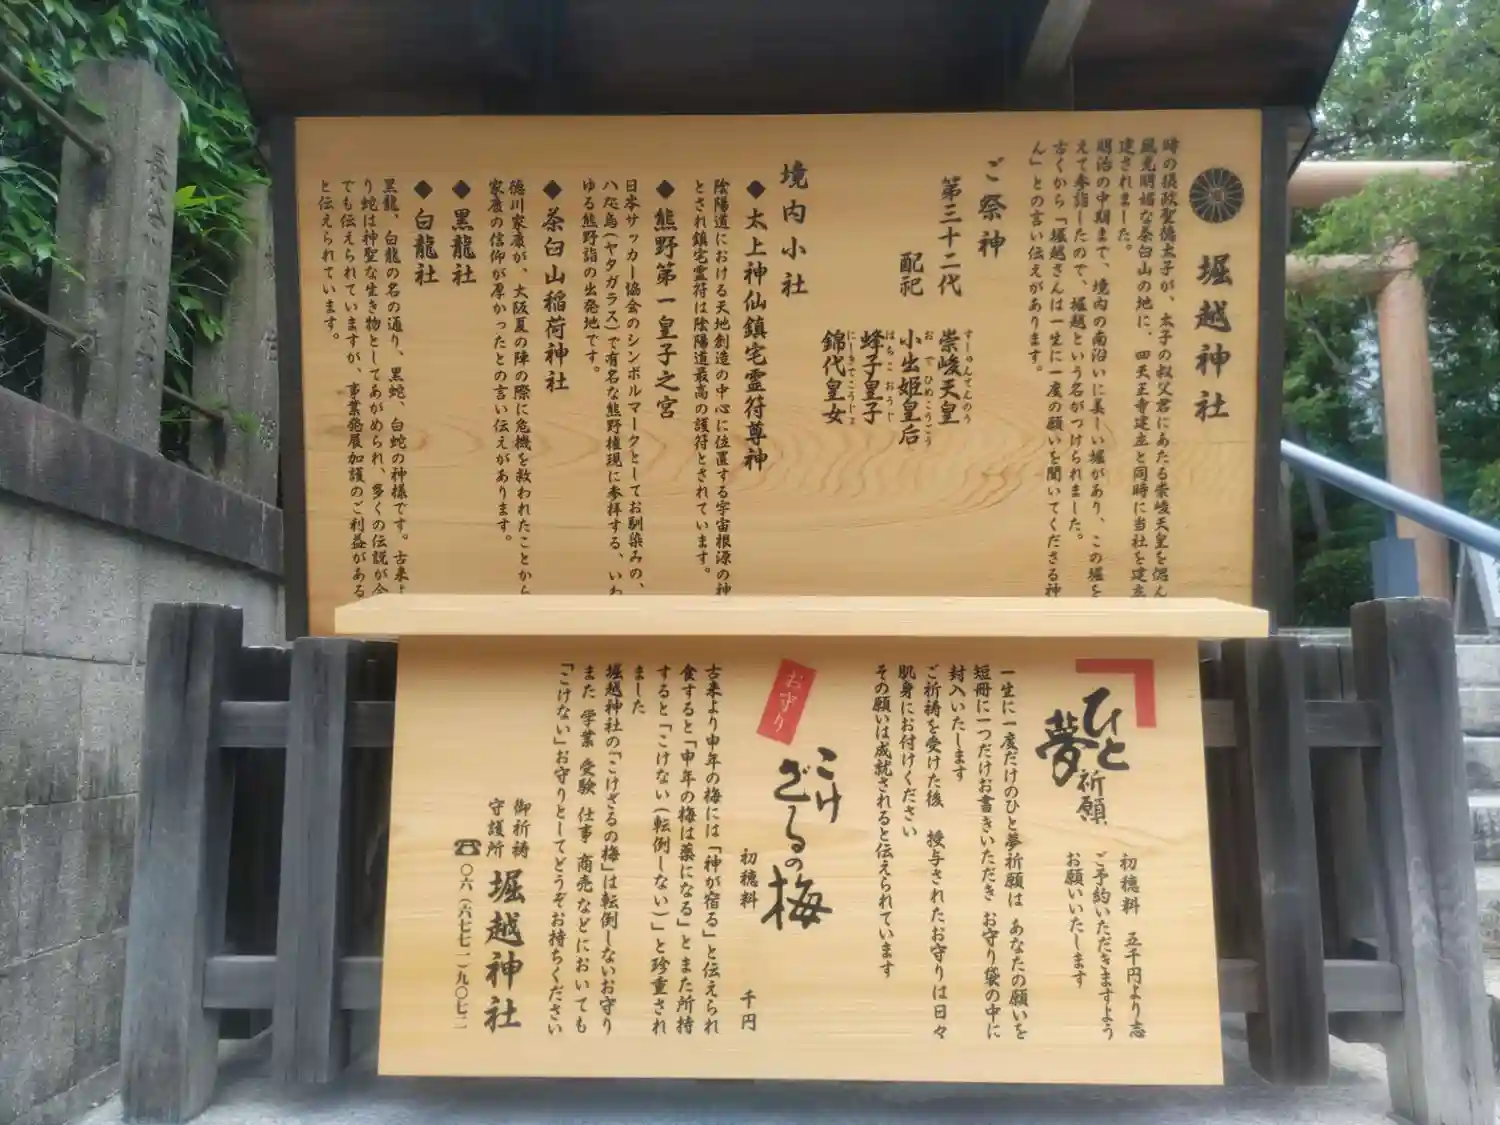 堀越神社
時の摂政聖徳太子が、太子の叔父君にあたる崇峻天皇を偲んで
風光明媚な茶臼山の地に、四天王寺建立と同時に当社を建立
建されました。
明治の中期まで、境内の南沿いに美しい堀があり、この堀を
えて参詣したので、堀越という名がつけられました。
古くから「堀越さんは一生に一度の願いを聞いてくださる神
ん」との言い伝えがあります。
ご祭神
第三十二代 崇峻天皇
すしゅんてんのう
配祀 小出姫皇后
おでひめこうごう
蜂子皇子
はちこおうじ
錦代皇女
にしきてこうじょ
境内小社
◆太上神仙鎮宅霊符尊神
陰陽道における天地創造の中心に位置する宇宙根源の神
とされ鎮宅霊符は陰陽道最高の護符とされています。
◆熊野第一皇子之宮
日本サッカー協会のシンボルマークとしてお馴染みの、
八咫烏(ヤタガラス)で有名な熊野権現に参拝する、いわ
ゆる熊野詣の出発地です。
◆茶臼山稲荷神社
徳川家康が、大阪夏の陣の際に危機を救われたことから
家康の信仰が厚かったとの言い伝えがあります。
◆黒龍社
◆白龍社
黒龍、白龍の名の通り、黒蛇、白蛇の神様です。古来よ
り蛇は神聖な生き物としてあがめられ、多くの伝説が今
でも伝えられていますが、事業発展加護のご利益がある
と伝えられています。
ひと夢祈願
初穂料 五千円より志
ご予約いただきますよう
お願いいたします
一生に一度だけのひと夢祈願は あなたの願いを
短冊に一つだけお書きいただき お守り袋の中に
封入いたします
ご祈祷を受けた後 授与されたお守りは日々
肌身にお付けください
その願いは成就されると伝えられています
お守り
こけざるの梅
初穂料 千円
古来より申年の梅には「神が宿る」と伝えられ
食すると「申年の梅は薬になる」とまた所持
すると「こけない(転倒しない)」と珍重され
ました
堀越神社の「こけざるの梅」は転倒しないお守り
また 学業 受験 仕事 商売 などにおいても
「こけない」お守りとしてどうぞお持ちください
御祈祷
守護所
堀越神社
☎〇六(六七七一)九〇七二